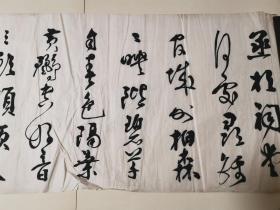 丞相祠堂
何處尋錦
官城外柏森
森映階碧草
自春色隔葉
黃鸝空好音
三顧頻煩